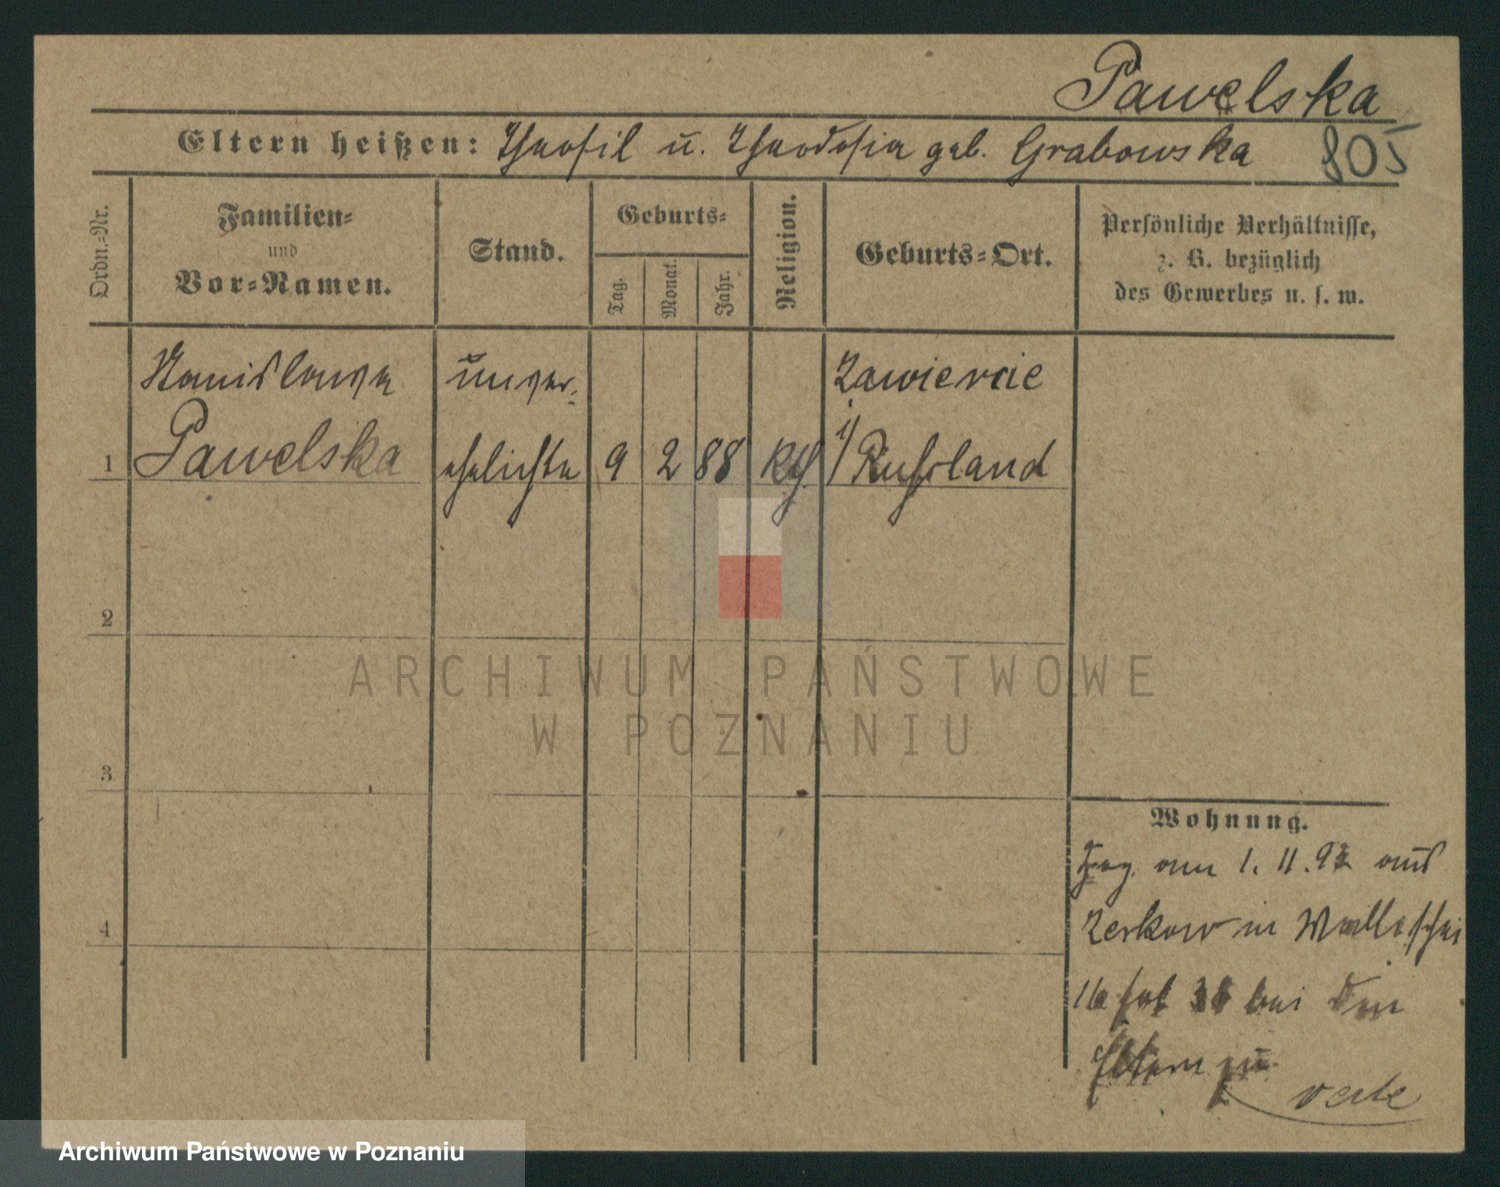 Pawelska
Eltern heißen: Theofil u. Theodosia geb. Grabowska 805
Ordn.-Nr.
Familien-
und
Vor-Namen.
Stand.
Geburts-
Tag.
Monat.
Jahr.
Religion.
Geburts-Ort.
Persönliche Verhältnisse,
z. B. bezüglich
des Gewerbes u. s. w.
Stanislawa unver- Zawiercie
1 Pawelska ehelichte 9 2 88 kth i/ Russland
2
3
4
Wohnung.
Zog. am 1. 11. aus
Zerkow in Wallischei
bei den
Eltern zu
verte
ARCHIWUM PAŃSTWOWE
W POZNANIU
Archiwum Państwowe w Poznaniu